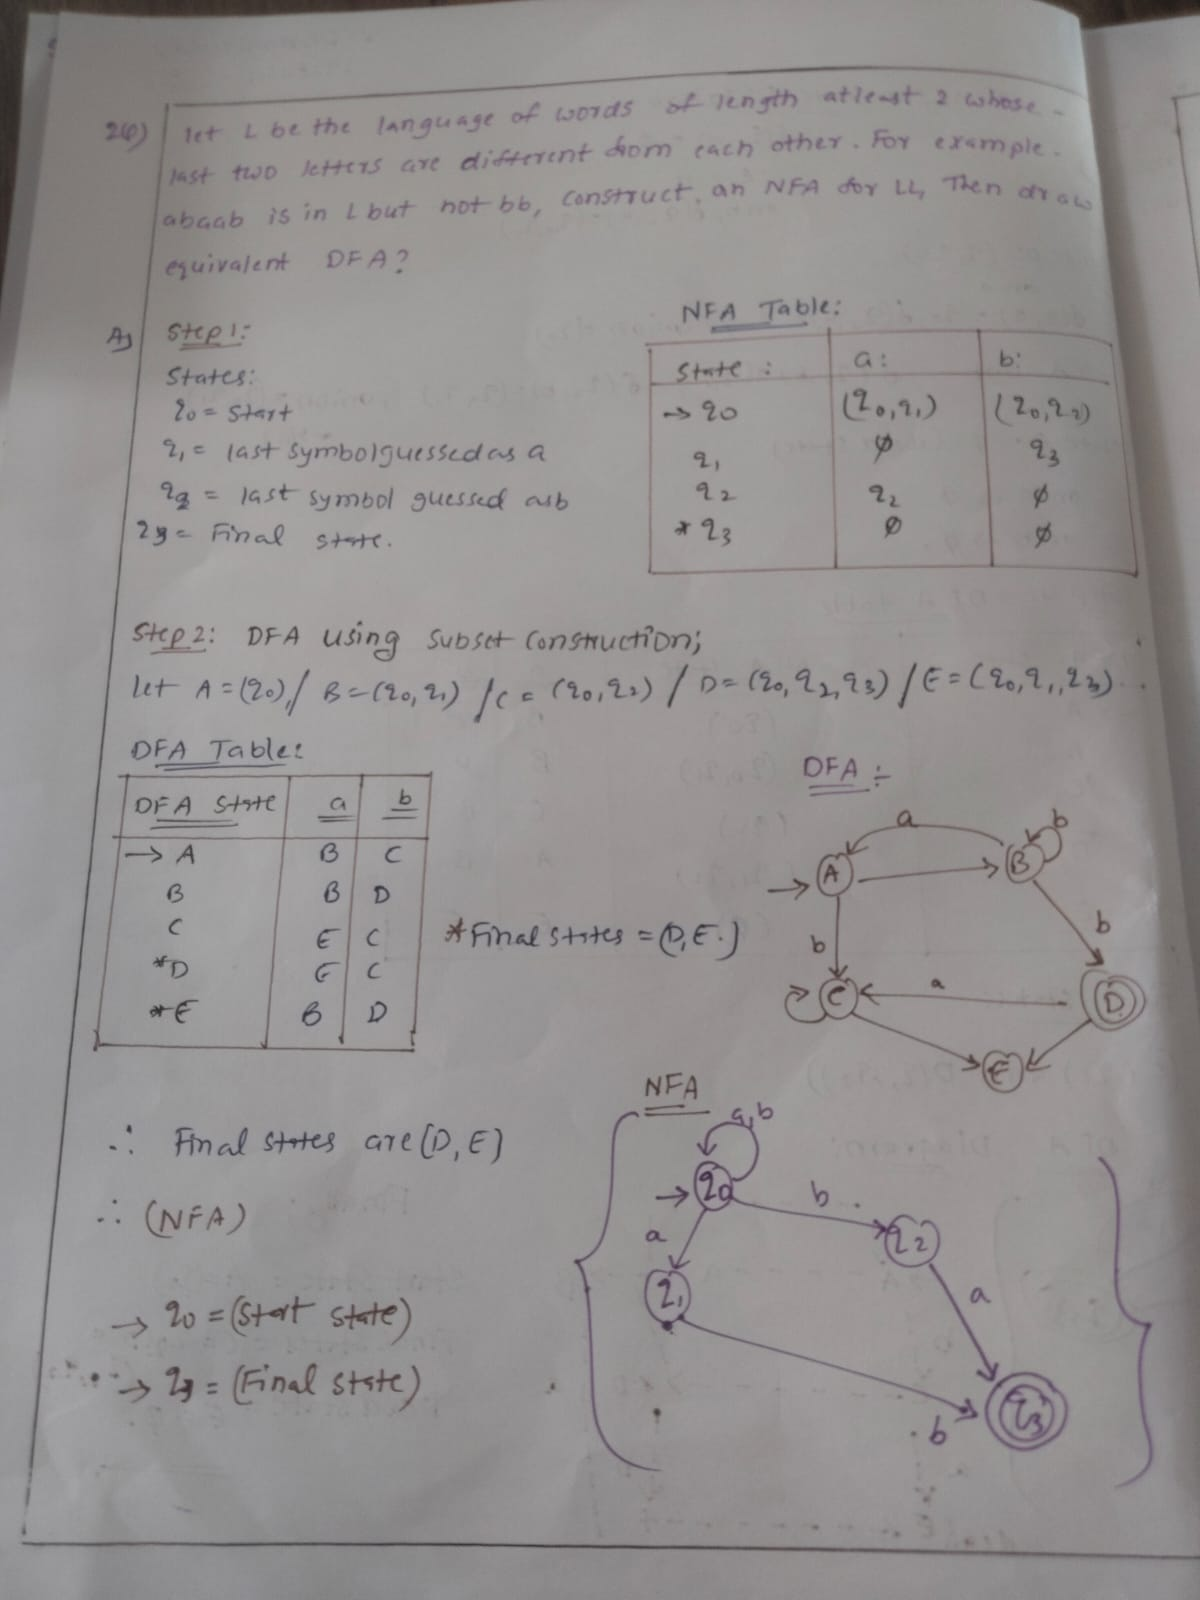 26) let L be the language of words of length atleast 2 whose -
last two letters are different from each other. For example.
abaab is in L but not bb, construct, an NFA for LL, Then draw
equivalent DFA?
A) Step 1:
States:
q0 = Start
q1 = last symbol guessed as a
q2 = last symbol guessed as b
q3 = Final state.
NFA Table:
State : a: b:
→ q0 (q0,q1) (q0,q2)
q1 ∅ q3
q2 q2 ∅
* q3 ∅ ∅
Step 2: DFA using subset construction;
let A = (q0) / B = (q0,q1) / C = (q0,q2) / D = (q0,q2,q3) / E = (q0,q1,q3)
DFA Table:
DFA State a b
→ A B C
B B D
C E C
*D E C
*E B D
* Final states = (D, E.)
DFA :-
a
b
A
B
b
b
a
C
D
E
∴ Final states are (D, E)
∴ (NFA)
→ q0 = (Start state)
→ q3 = (Final state)
NFA
a,b
q0
b
a
q2
q1
a
q3
b